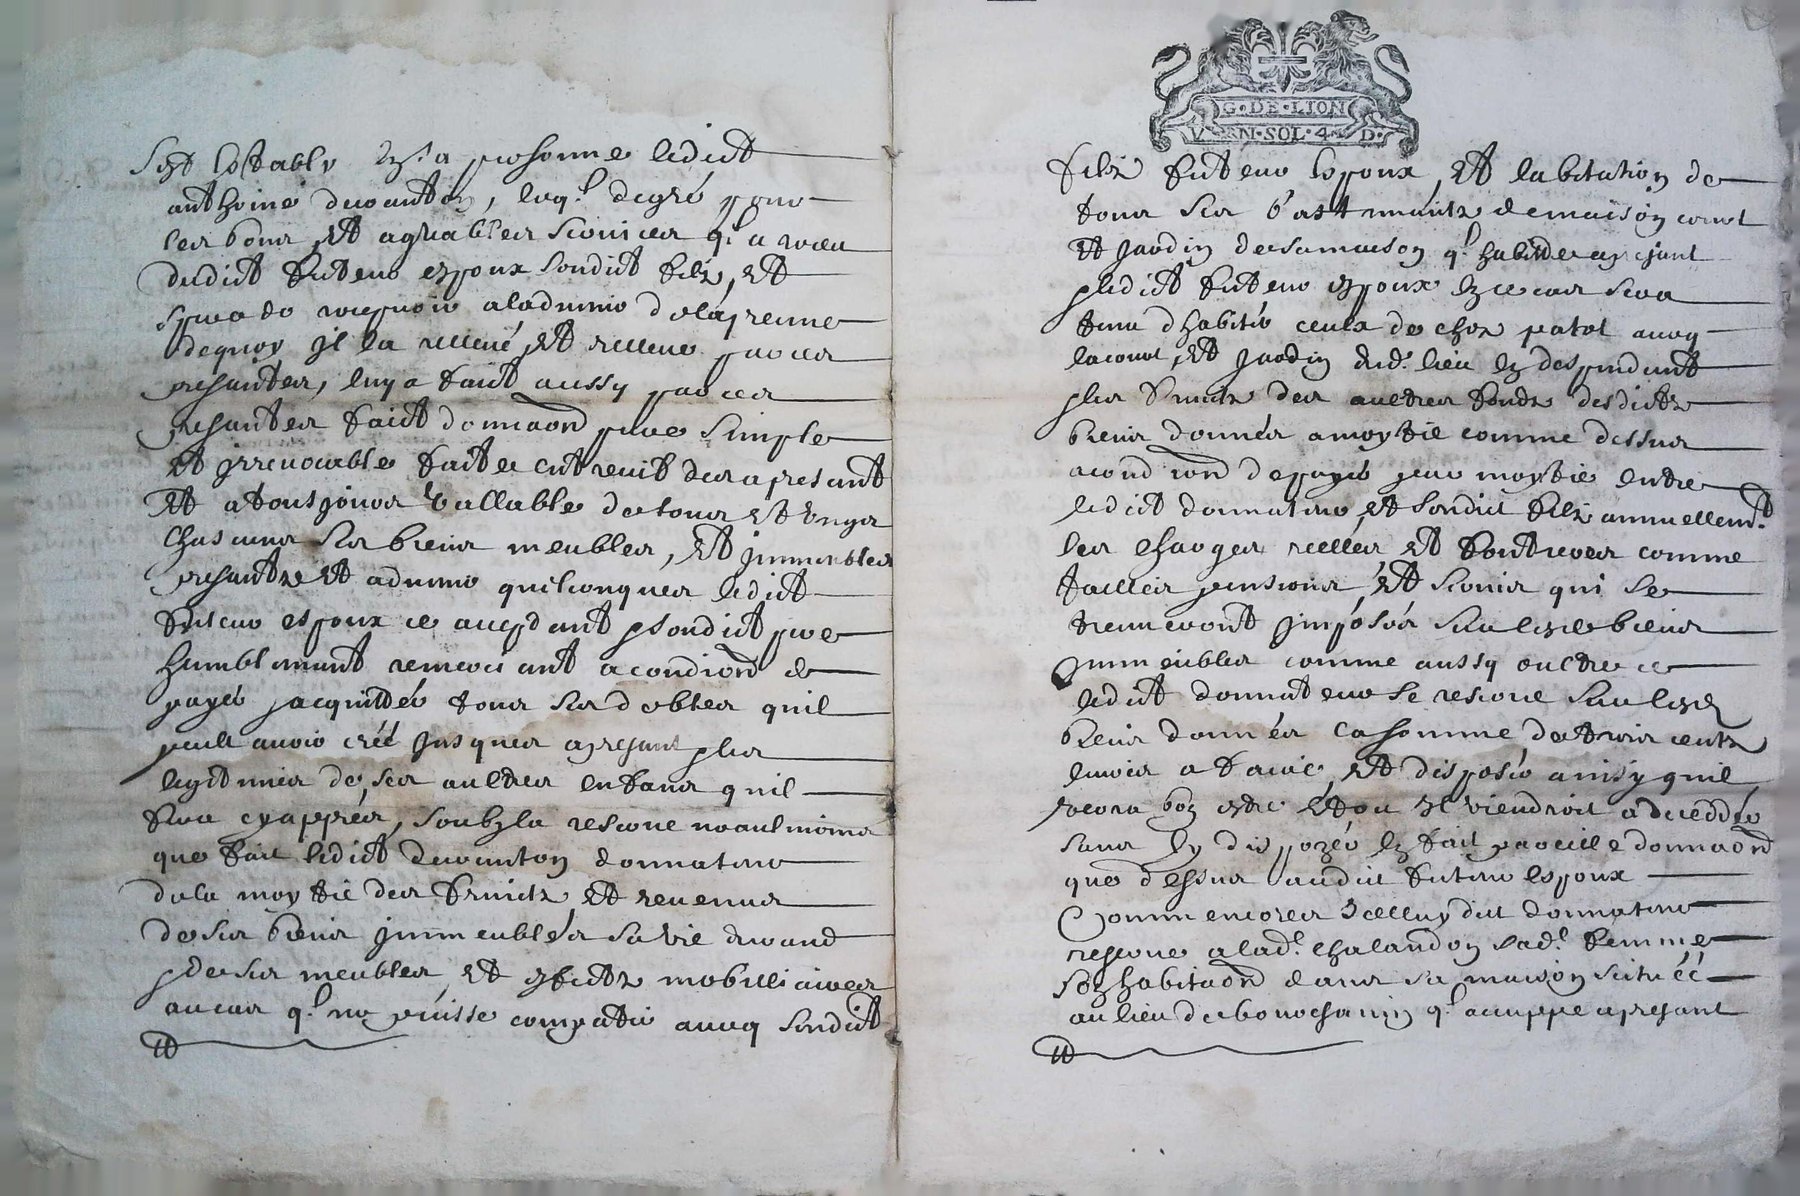 Sest Estably en sa personne ledict
anthoine ducanton, leql. degré pour
les bons et agreables services ql. a receu
dudict futeur espoux sondict filz, et
spere do recepvoir aladvenir delapreuve
dequoy il la relleué et relleue par ces
presantes, luy a faict aussy par ces
presantes faict donnaōn pure simple
et irrevocable faite entre vif des apresant
et atousjours vallable de tous et ungs
chascuns ses biens meubles, et immeubles
presantz et advenir quelconques ledict
futeur espoux ce aceptant et sondict pere
humblemant remerciant a condiōn de
payer jacquitter tous ses debtes quil
peult avoir créé jusques apresant et les
legitimes de ses aultres enfans quil
fera cyappres, soubz la reserve neaulmoins
que faict ledict ducanton donnateur
de la moytié des fruictz et revenus
de ses biens immeubles sa vie durand
et de ses meubles et effectz mobilliaires
au cas ql. ne puisse compatir aveq sondict
G·DE·LION
V·N·SOL·4·D·
filz futeur Espoux, et labitation de
tous ses bastimantz de maison court
et jardin de sa maison ql. habitte apresant
et ledict futeur espoux en ce cas sera
tenu dhabiter ceulx de chez patot aveq
la court, et jardin dud. lieu en despendant
et les fruictz des aultres fondz desdictz
biens donnés a moytié comme dessus
a condiōn de payer par moytié entre
ledict donnateur, et sondict filz annuellemt.
les charges reelles et fontieres comme
tailles pensions, et servis qui se
treuveront imposés sur lesd. biens
immeubles comme aussy oultre ce
ledict donnateur se reserve sur lesd.
biens donnés la somme de trois centz
livres a faire, et disposer ainsy quil
verra bon estre et ou il viendroit a decedder
sans en disposer en fait pareille donnaōn
que dessus audict futeur espoux
Comm encores Icelluy dict donnateur
reserve a lad. chalandon sad. femme
son habitaōn dans sa maison scituéé
au lieu de bonechanin ql. accuppe apresant